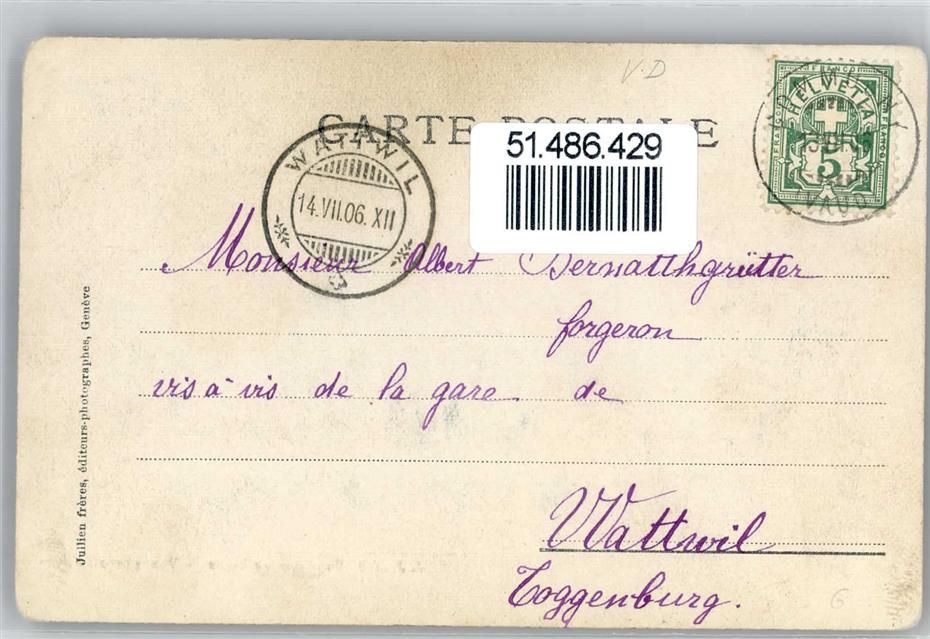 V.D
CARTE POSTALE
51.486.429
WATTWIL
14.VII.06.XII
FRANCO
HELVETIA
FRANCO
FRANCO
5
(VAUD)
Monsieur Albert Bernatthgrütter
forgeron
vis à vis de la gare de
Wattwil
Toggenburg.
Jullien frères, éditeurs-photographes, Genève
6